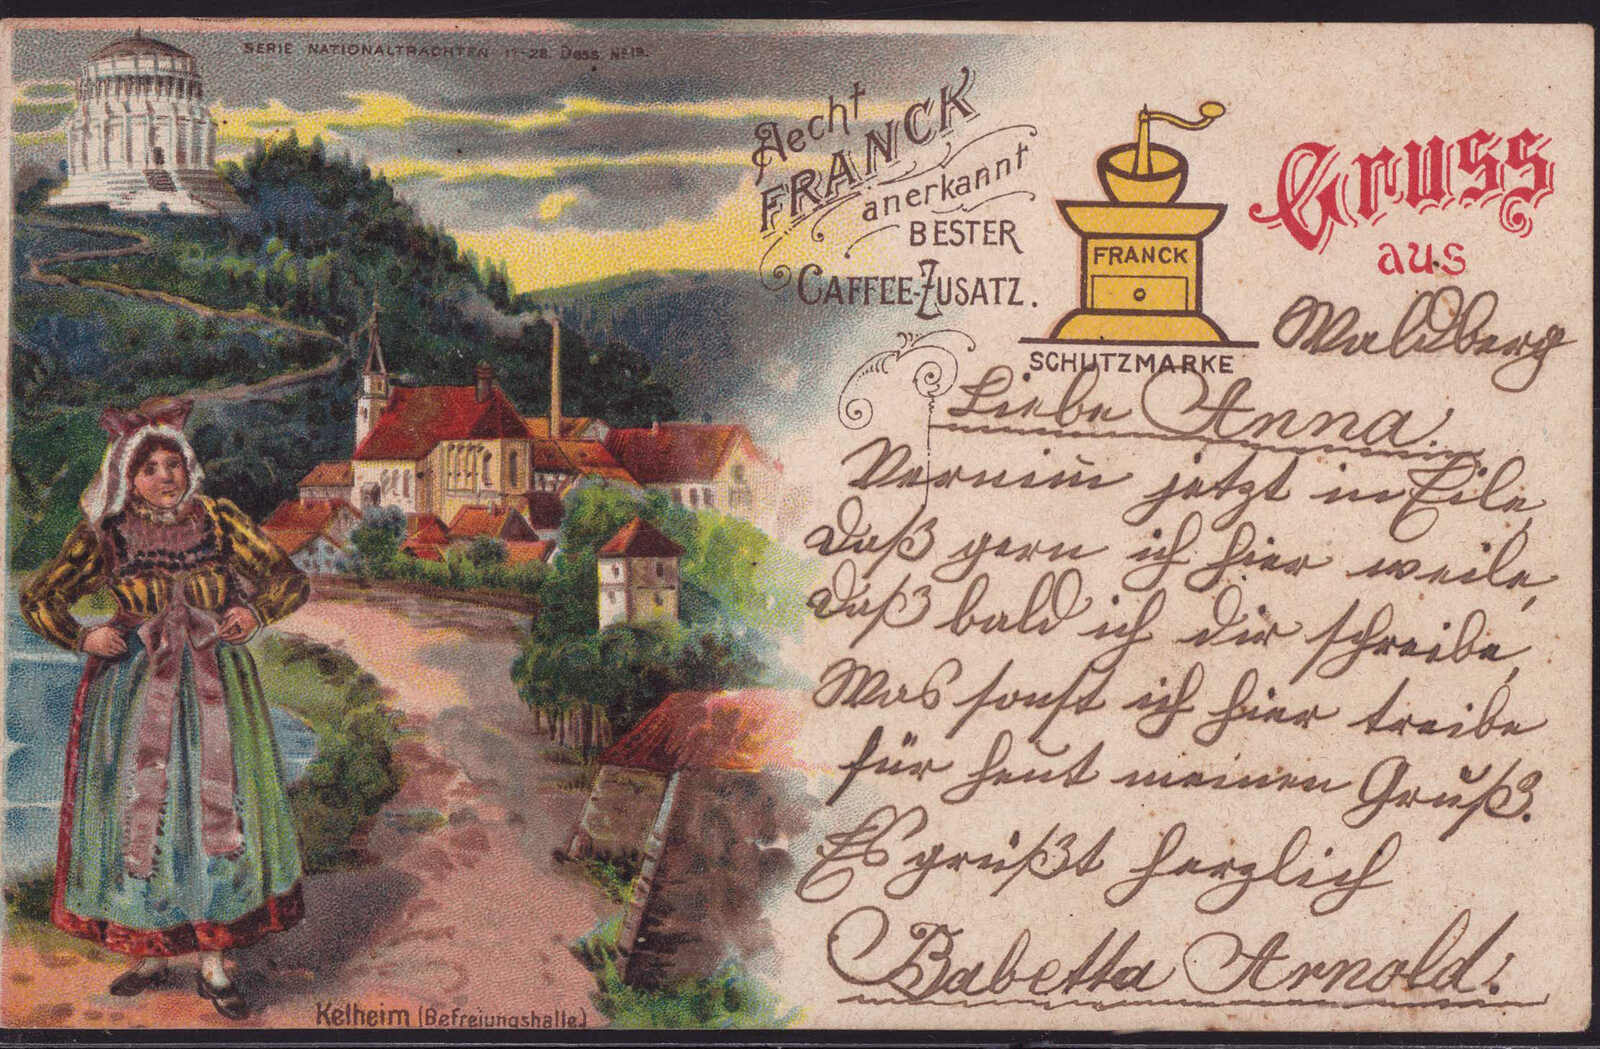 SERIE NATIONALTRACHTEN 17-28. Dess. No 19.
Aecht
FRANCK
anerkannt
BESTER
CAFFEE-ZUSATZ.
FRANCK
SCHUTZMARKE
Gruss
aus
Waldberg
Liebe Anna.
Vernim jetzt in Eile,
Daß gern ich hier weile,
Daß bald ich dir schreibe,
Was sonst ich hier treibe
für heut meinen Gruß.
Es grüßt herzlich
Babetta Arnold.
Kelheim (Befreiungshalle)